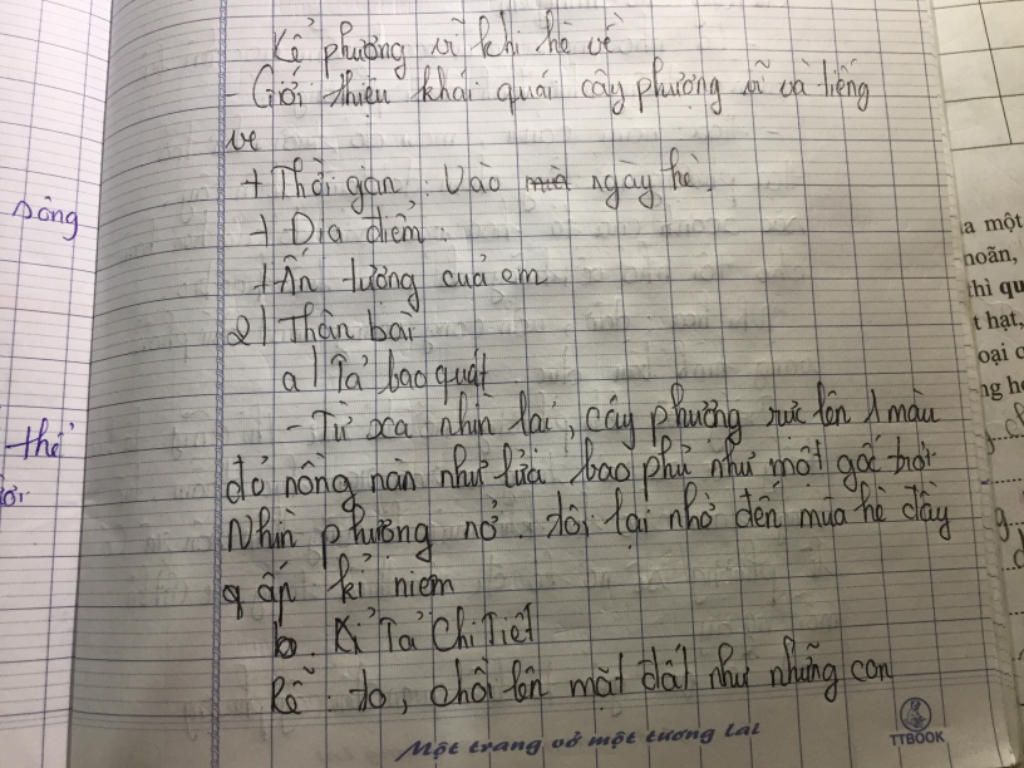 Kể phường vĩ khi hè về
- Giới thiệu khái quái cây phượng vĩ và tiếng
ve
+ Thời gian: Vào ngày hè.
+ Địa điểm:
+ Ấn tường cuả em
2/ Thân bài
a/ Tả bao quát
- Từ xa nhìn lại, cây phường rực lên 1 màu
đỏ nồng nàn như lửa bao phủ như một gốc trời
Nhìn phường nở. tôi lại nhờ đến mùa hè đầy
ấp kỉ niem
b. Tả Chi Tiết
Rễ: to, chồi lên mặt đất như những con
Một trang vở một tương lai
TTBOOK
sông
thể
a một
noãn,
thì qu
t hạt,
oại c
ng h